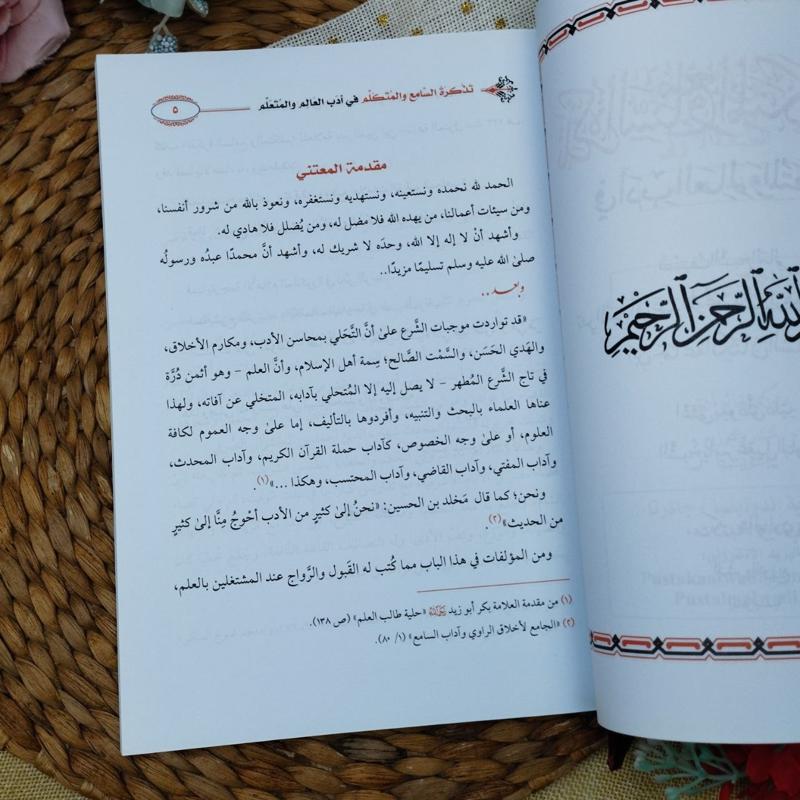 تذكرة السامع والمتكلم في أدب العالم والمتعلم
٥
مقدمة المعتني
الحمد لله نحمده ونستعينه، ونستهديه ونستغفره، ونعوذ بالله من شرور أنفسنا،
ومن سيئات أعمالنا، من يهده الله فلا مضل له، ومن يُضلل فلا هادي له.
وأشهد أنْ لا إله إلا الله، وحدَه لا شريك له، وأشهد أنَّ محمدًا عبدُه ورسولُه
صلىٰ الله عليه وسلم تسليمًا مزيدًا..
وبعد..
«قد تواردت موجبات الشَّرع علىٰ أنَّ التَّحَلي بمحاسن الأدب، ومكارم الأخلاق،
والهَدي الحَسَن، والسَّمْت الصَّالح؛ سِمة أهل الإسلام، وأنَّ العلم – وهو أثمن دُرَّة
في تاج الشَّرع المُطهر – لا يصل إليه إلا المُتحلي بآدابه، المتخلي عن آفاته، ولهذا
عناها العلماء بالبحث والتنبيه، وأفردوها بالتأليف، إما علىٰ وجه العموم لكافة
العلوم، أو علىٰ وجه الخصوص، كآداب حملة القرآن الكريم، وآداب المحدث،
وآداب المفتي، وآداب القاضي، وآداب المحتسب، وهكذا ...»(١).
ونحن؛ كما قال مَخلد بن الحسين: «نحنُ إلىٰ كثيرٍ من الأدب أحْوجُ مِنَّا إلىٰ كثيرٍ
من الحديث»(٢).
ومن المؤلفات في هذا الباب مما كُتب له القَبول والرَّواج عند المشتغلين بالعلم،
(١) من مقدمة العلامة بكر أبو زيد رحمه الله «حلية طالب العلم» (ص ١٣٨).
(٢) «الجامع لأخلاق الراوي وآداب السامع» (١/ ٨٠).
الله الرحمن الرحيم